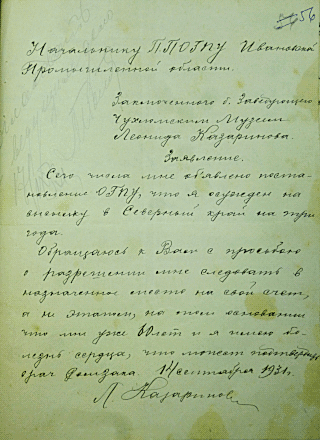 56
Начальнику ППОГПУ Ивановской
Промышленной области.
Заключенного б. Заведующего
Чухломским Музеем
Леонида Казаринова.
Заявление.
Сего числа мне объявлено поста-
новление ОГПУ, что я осужден на
высылку в Северный край на три
года.
Обращаюсь к Вам с просьбою
о разрешении мне следовать в
назначенное место на свой счет,
а не этапом, на том основании
что мне уже 60 лет и я имею бо-
лезнь сердца, что может подтвердить
врач Домзака. 14 сентября 1931 г.
Л. Казаринов